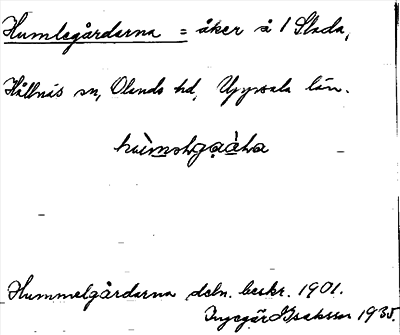 Humlegårdarna = åker å 1 Slada,
Hållnäs sn, Olands hd, Uppsala län.
Hummelgårdarna dsbn. beskr. 1901.
Ingegär Isaksson 1935.